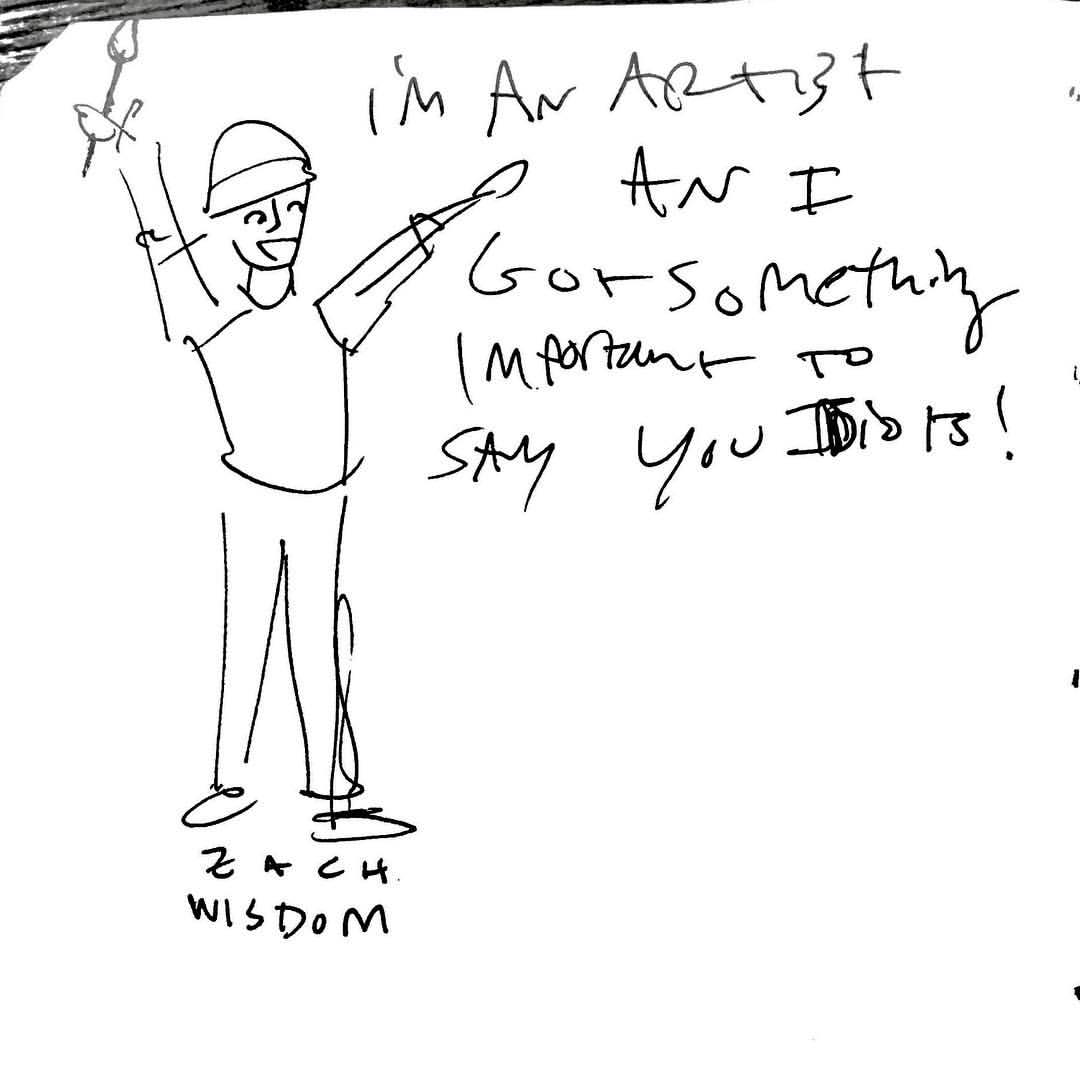 i'm An ARtist
AN I
Got something
Important to
SAY YOU IDiots!
ZACH
WISDOM